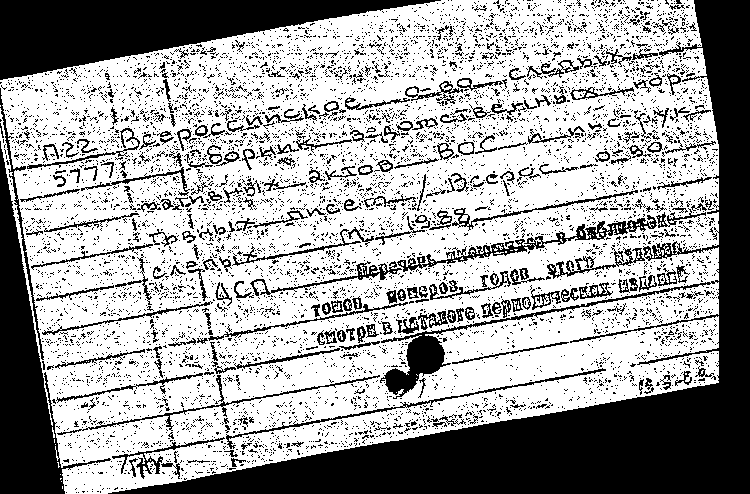 П22 Всероссийское о-во слепых.
5777 Сборник ведомственных нор-
мативных актов ВОС и инструк-
тивных писем / Всерос. о-во
слепых. - М., 1988-
ДСП
Перечень имеющихся в библиотеке
томов, номеров, годов этого издания
смотри в каталоге периодических изданий